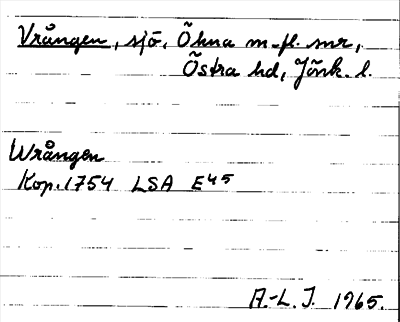 Vrången, sjö, Ökna m. fl. snr,
Östra hd, Jönk. l.
Wrången
Kop. 1754 LSA E45
A.-L. J. 1965.